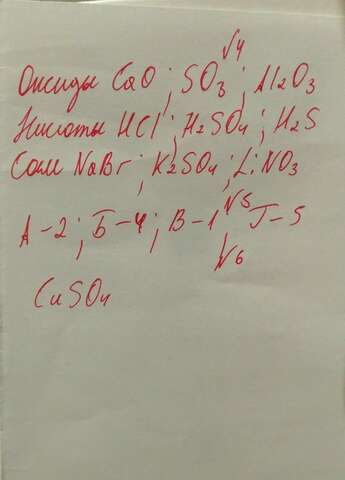 √4
Оксиды CaO ; SO3 ; Al2O3
Кислоты HCl ; H2SO4 ; H2S
Соли NaBr ; K2SO4 ; LiNO3
√5
А-2 ; Б-4 ; В-1 Г-5
√6
CuSO4